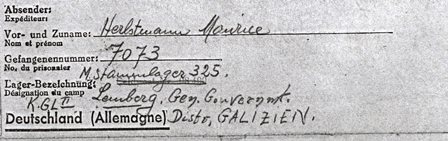 Absender:
Expéditeur:
Vor- und Zuname: Herbstmann Maurice
Nom et prénom
Gefangenennummer: 7073
No. du prisonnier
M. Stammlager 325.
Lager-Bezeichnung:
Désignation du camp
K.GL II Lemberg, Gen. Gouvernmt.
Deutschland (Allemagne) Distr, GALIZIEN.